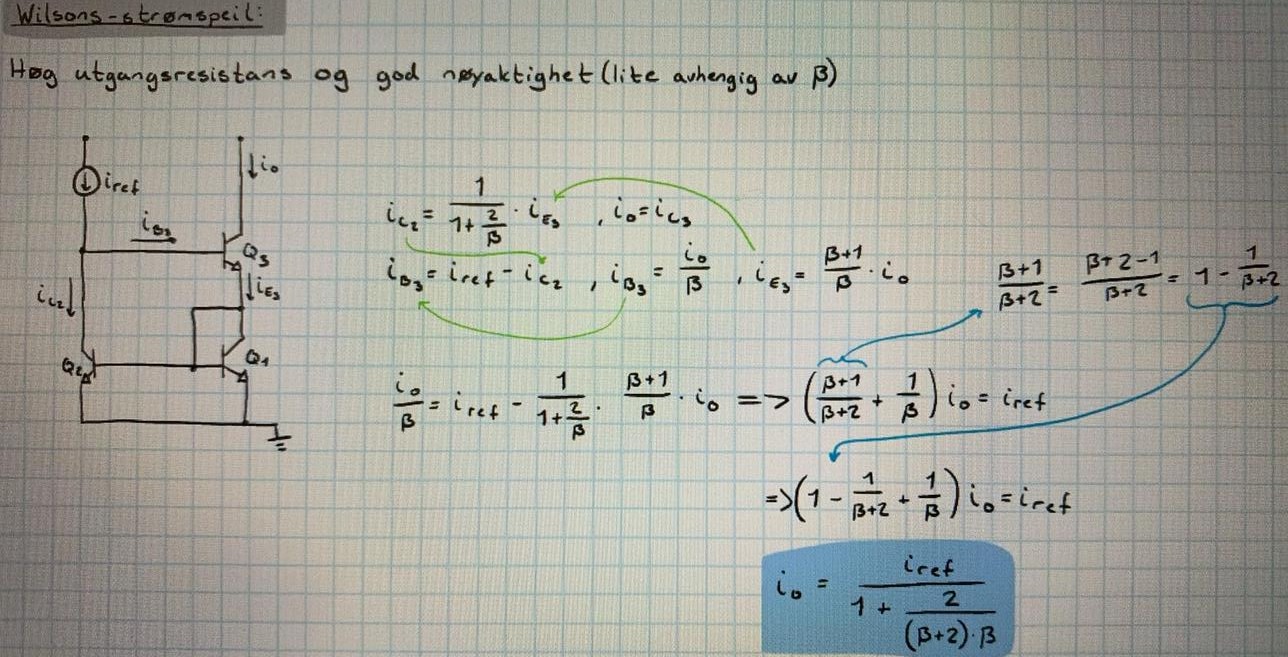 Wilsons-strømspeil:
Høg utgangsresistans og god nøyaktighet (lite avhengig av β)
iref
io
iB3
Q3
iC2
iE3
Q2
Q1
iC2 = 1/(1+2/β) · iE3 , io = iC3
iB3 = iref - iC2 , iB3 = io/β , iE3 = (β+1)/β · io
(β+1)/(β+2) = (β+2-1)/(β+2) = 1 - 1/(β+2)
io/β = iref - 1/(1+2/β) · (β+1)/β · io => ((β+1)/(β+2) + 1/β) io = iref
=> (1 - 1/(β+2) + 1/β) io = iref
io = iref/(1 + 2/((β+2)·β))